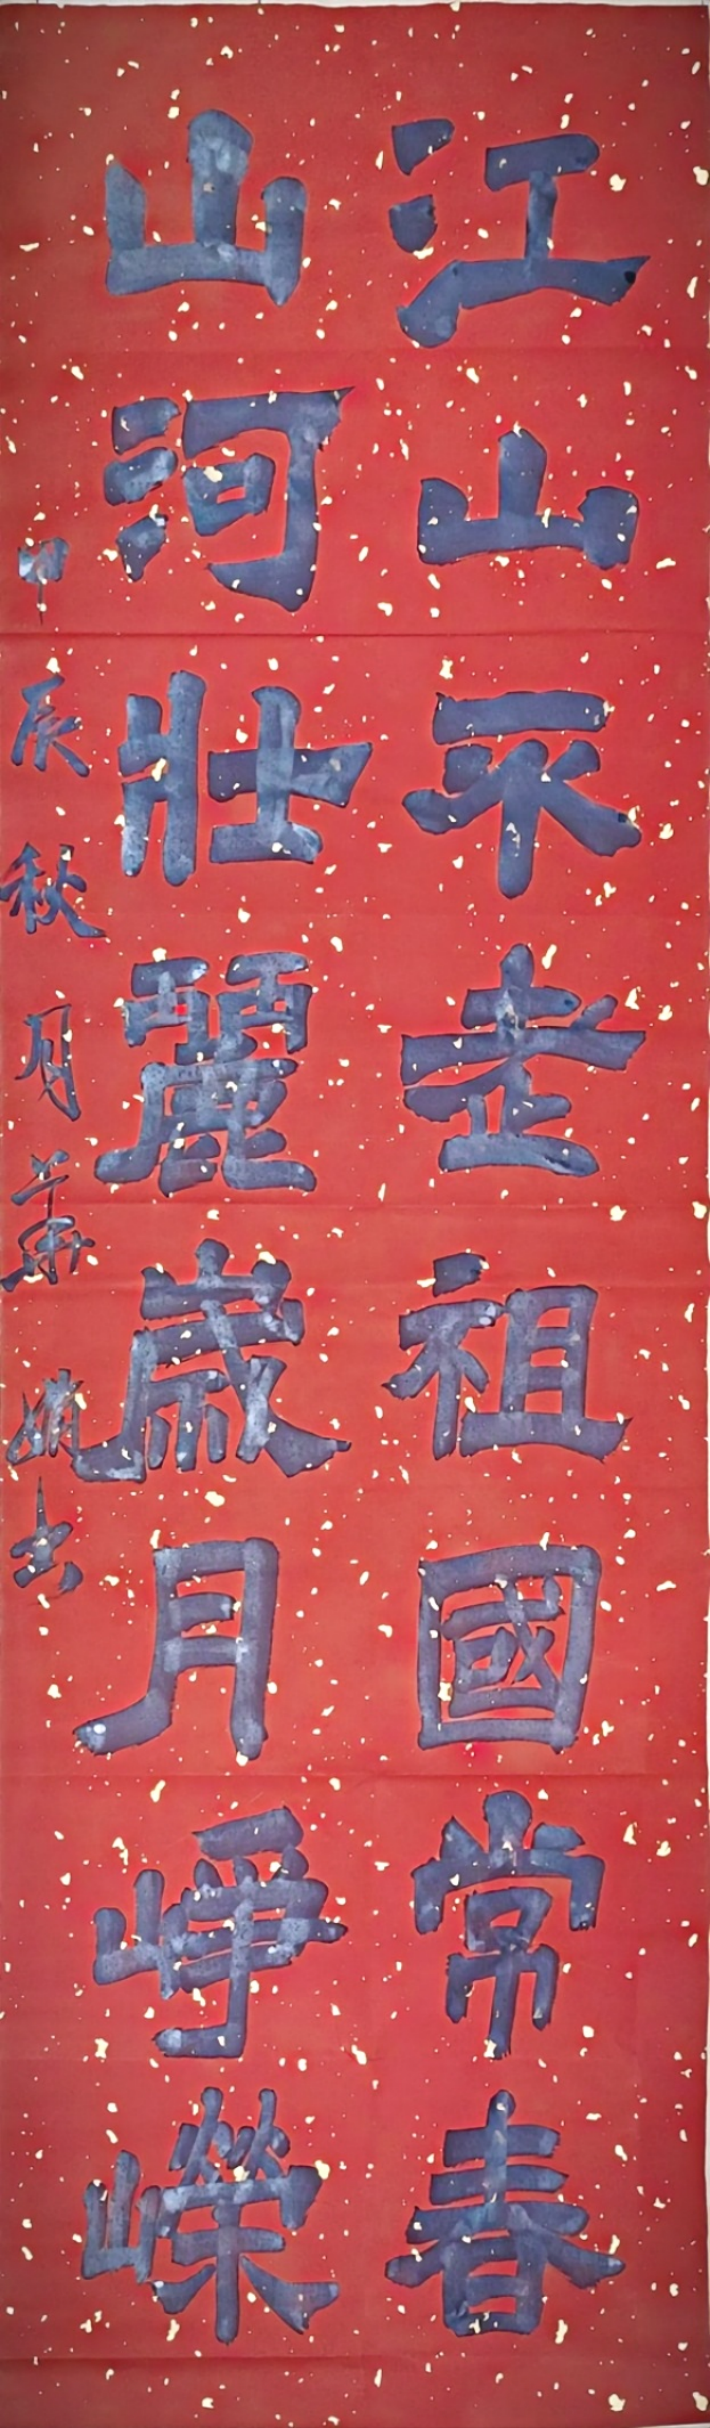 江山不老祖國常春
山河壯麗歲月崢嶸
甲辰秋月 娟书